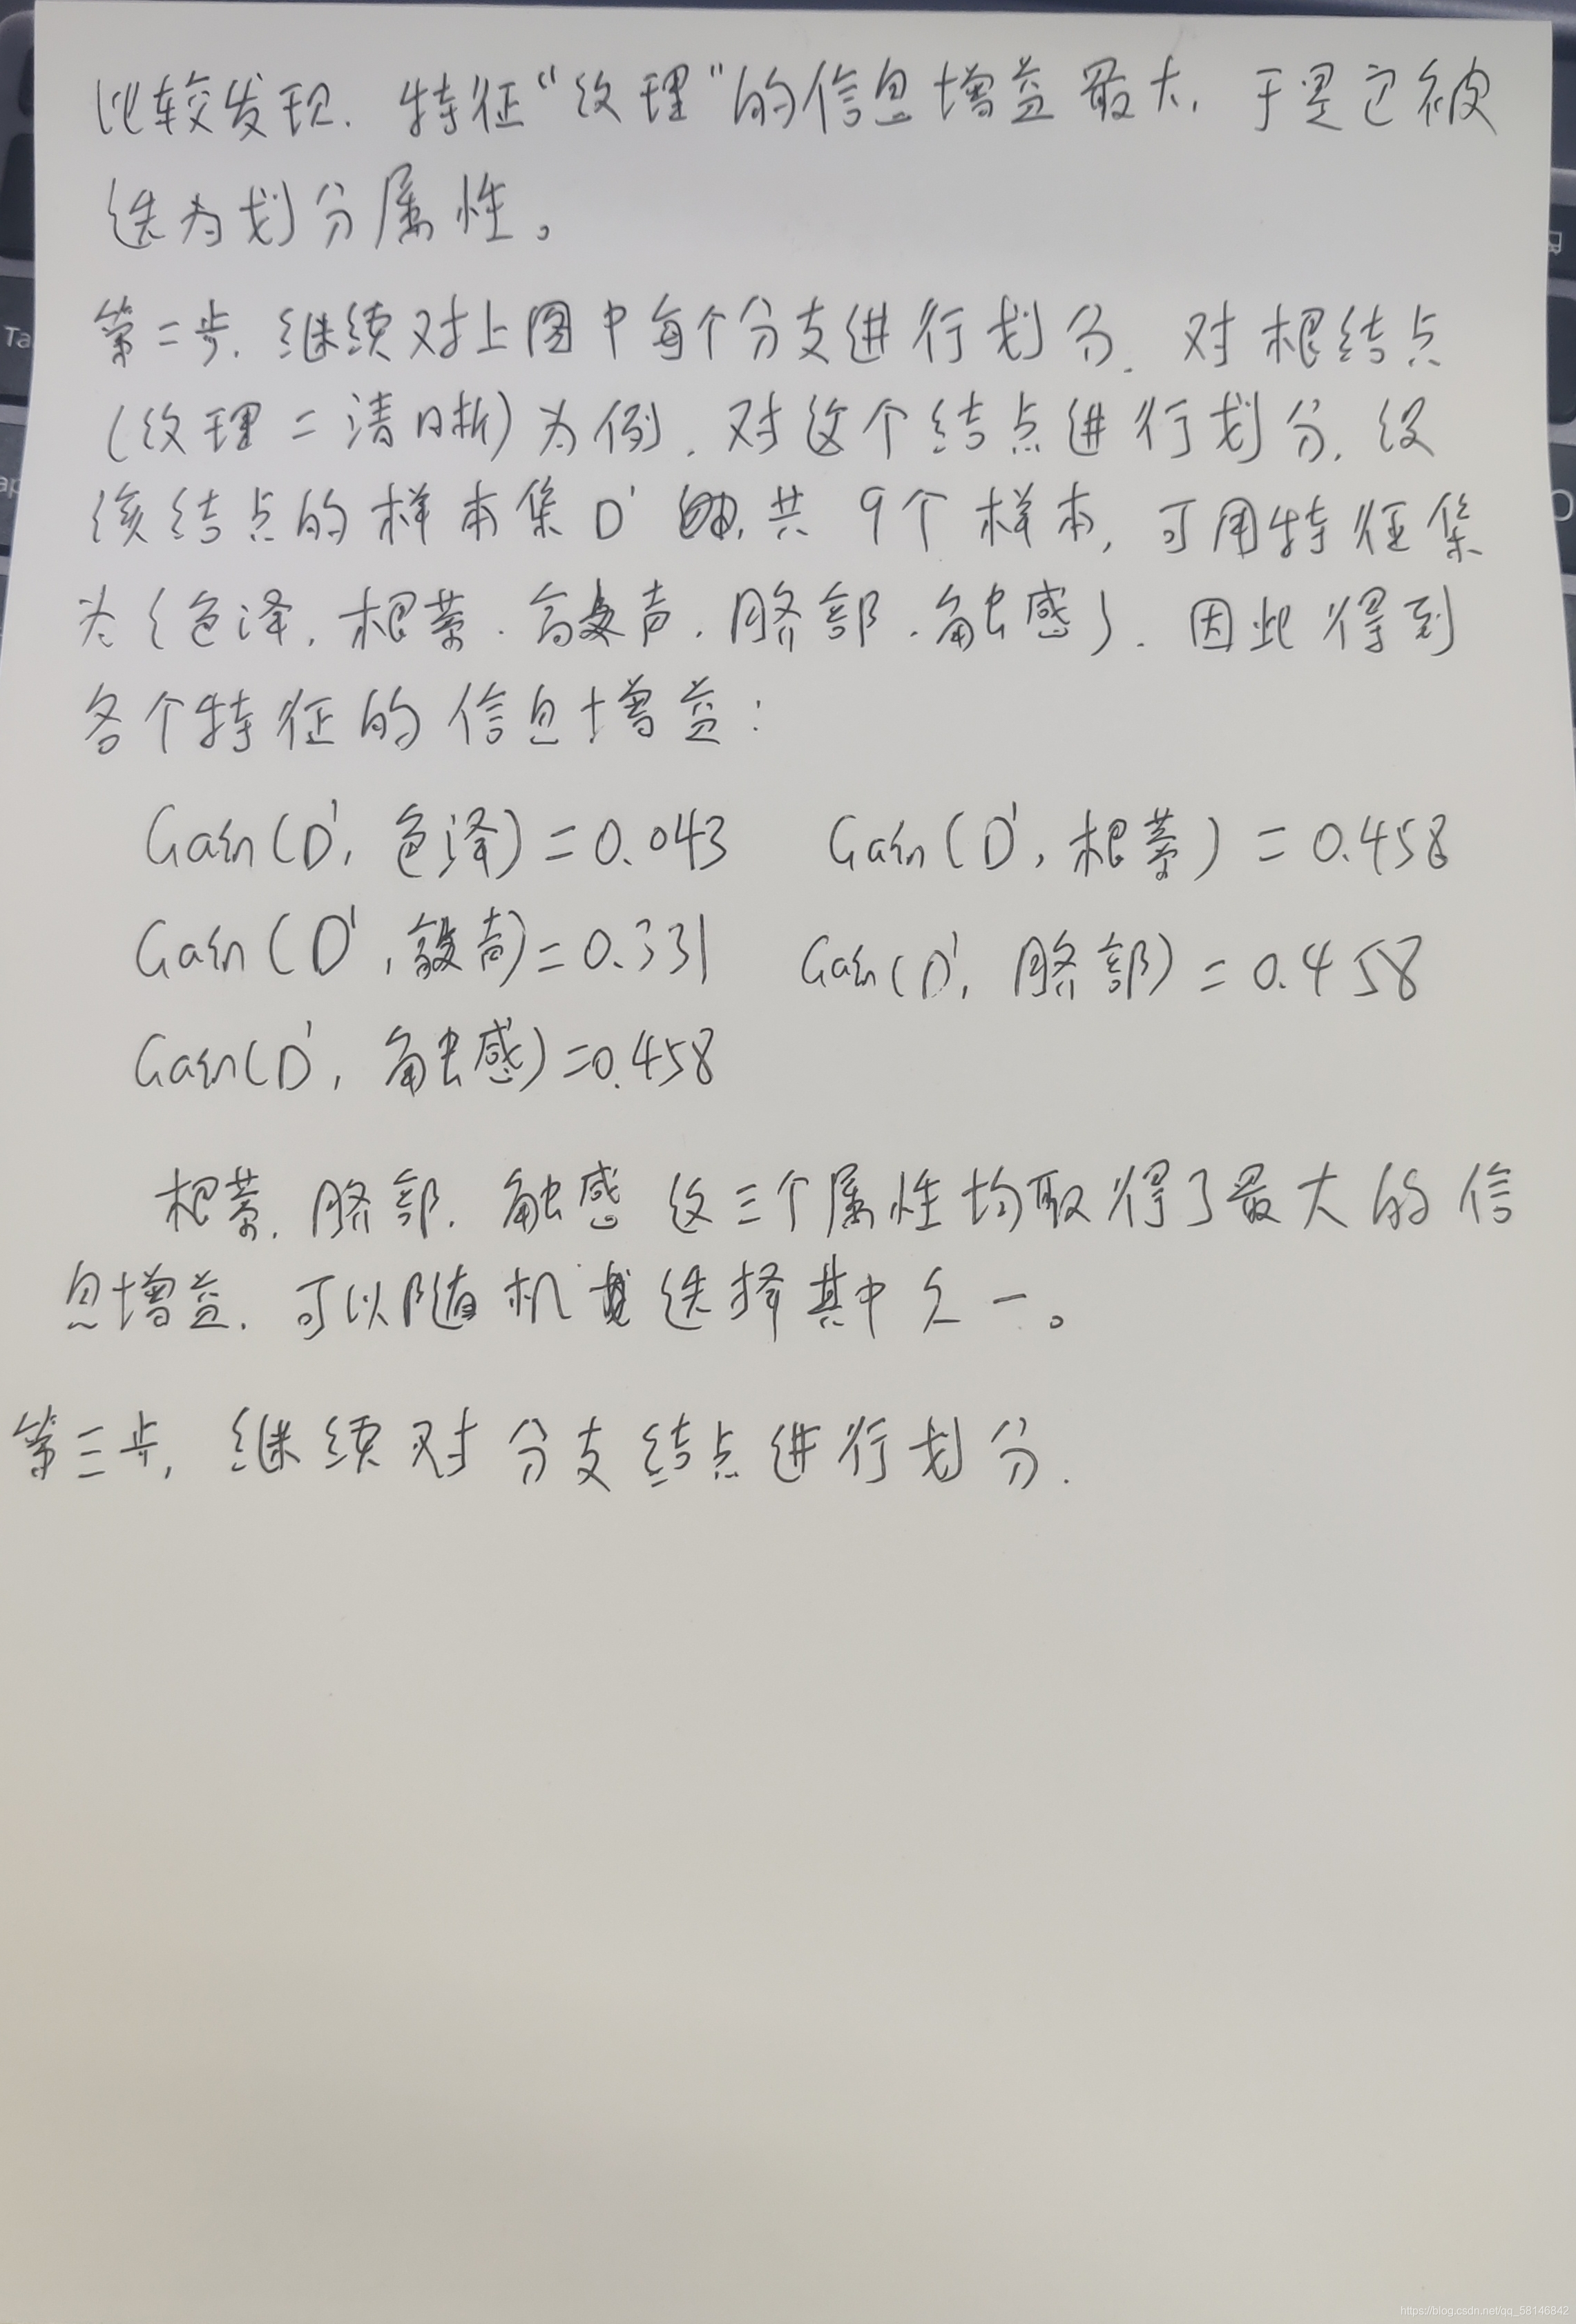 比较发现. 特征“纹理”的信息增益最大. 于是它被
选为划分属性。
第二步. 继续对上图中每个分支进行划分. 对根结点
(纹理=清晰)为例. 对这个结点进行划分. 设
该结点的样本集D' 共9个样本, 可用特征集
为{色泽. 根蒂. 敲声. 脐部. 触感}. 因此得到
各个特征的信息增益:
Gain(D', 色泽)=0.043 Gain(D', 根蒂)=0.458
Gain(D', 敲声)=0.331 Gain(D', 脐部)=0.458
Gain(D', 触感)=0.458
根蒂. 脐部. 触感 这三个属性均取得了最大的信
息增益. 可以随机选择其中之一。
第三步, 继续对分支结点进行划分.
https://blog.csdn.net/qq_58146842